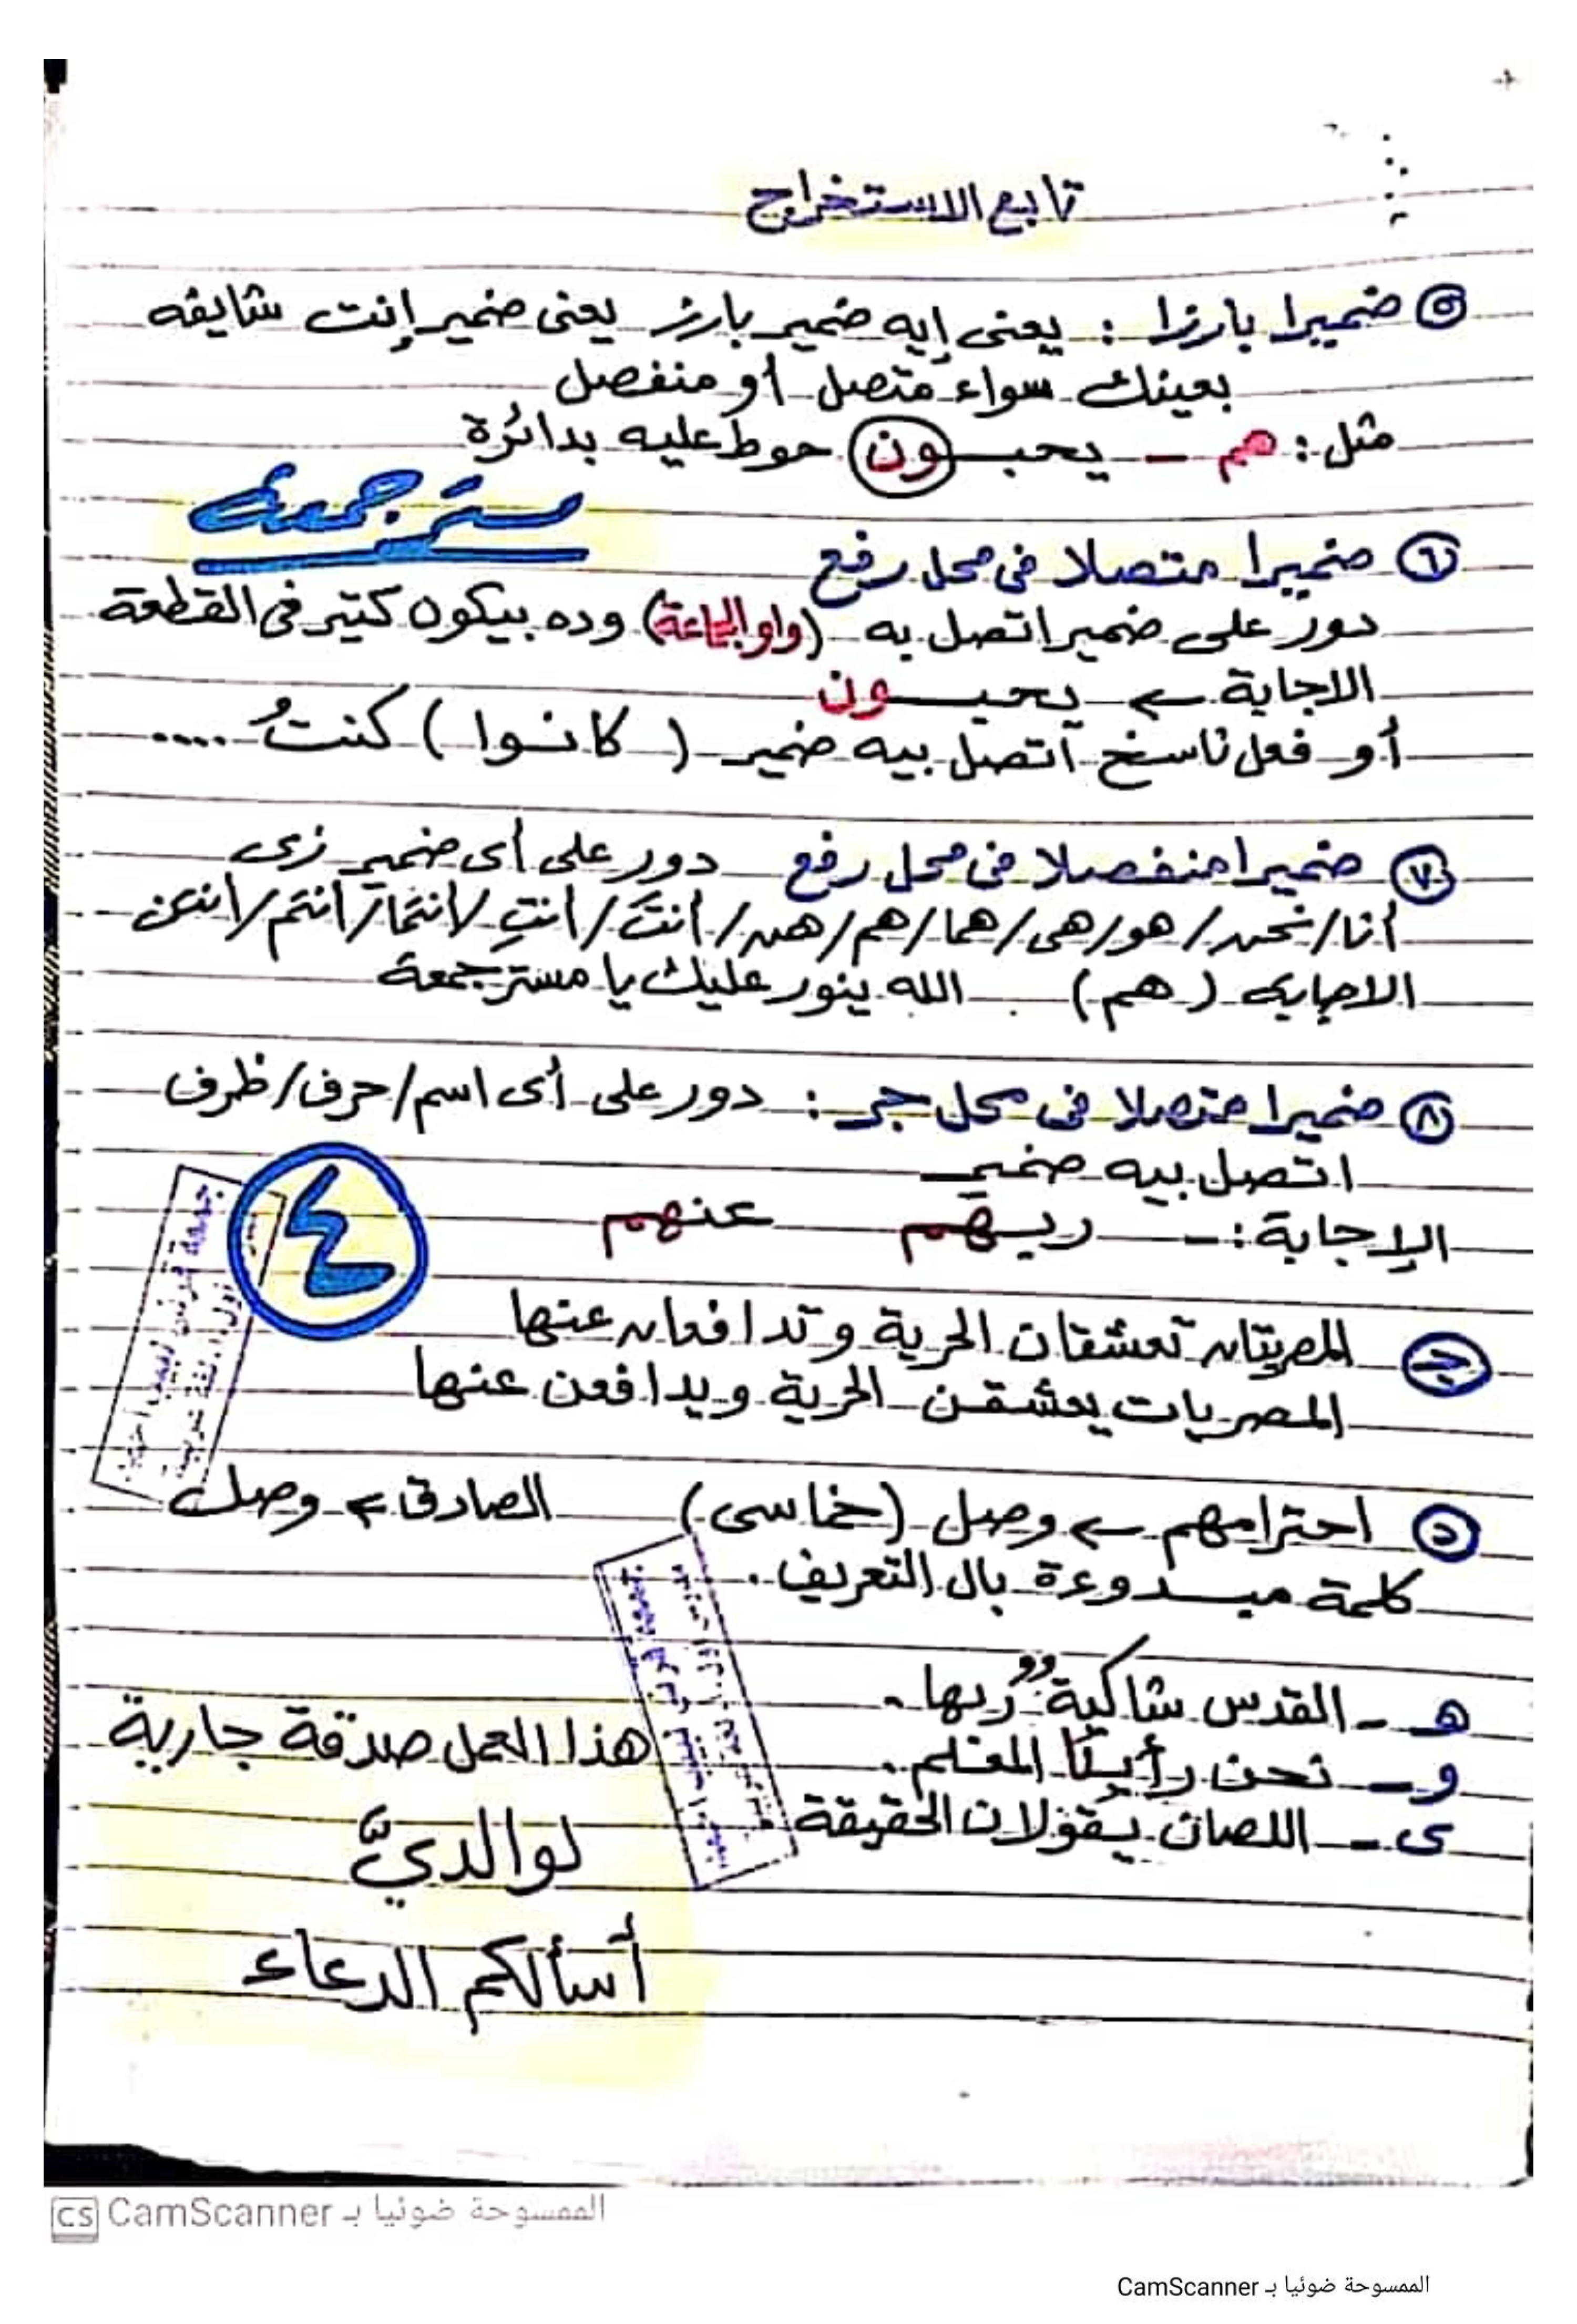 تابع الاستخراج
٥ ضميرا بارزا : يعنى إيه ضمير بارز يعنى ضمير إنت شايفه
بعينك سواء متصل أو منفصل
مثل : هم - يحبون حوط عليه بدائرة
مستر جمعة
٦ ضميرا متصلا فى محل رفع
دور على ضمير اتصل به (واو الجماعة) وده بيكون كتير فى القطعة
الاجابة ← يحبون
أو فعل ناسخ اتصل بيه ضمير ( كانوا ) كنتُ .....
٧ ضميرا منفصلا فى محل رفع دور على أى ضمير زى
أنا / نحن / هو / هى / هما / هم / هن / أنتَ / أنتِ / أنتما / أنتم / أنتن
الاجابه ( هم ) الله ينور عليك يا مستر جمعة
٨ ضميرا متصلا فى محل جر : دور على أى اسم / حرف / ظرف
اتصل بيه ضمير
الإجابة :- ربهم عنهم
٤
جـ المصريتان تعشقان الحرية وتدافعان عنها
المصريات يعشقن الحرية ويدافعن عنها
د احترامهم ← وصل (خماسى) الصادق ← وصل
كلمة مبدوءة بال التعريف .
هـ - القدس شاكية ربها .
و - نحن رأينا المعلم .
ى - اللصان يقولان الحقيقة
هذا العمل صدقة جارية
لوالديَّ
أسألكم الدعاء
الممسوحة ضوئيا بـ CamScanner
الممسوحة ضوئيا بـ CamScanner